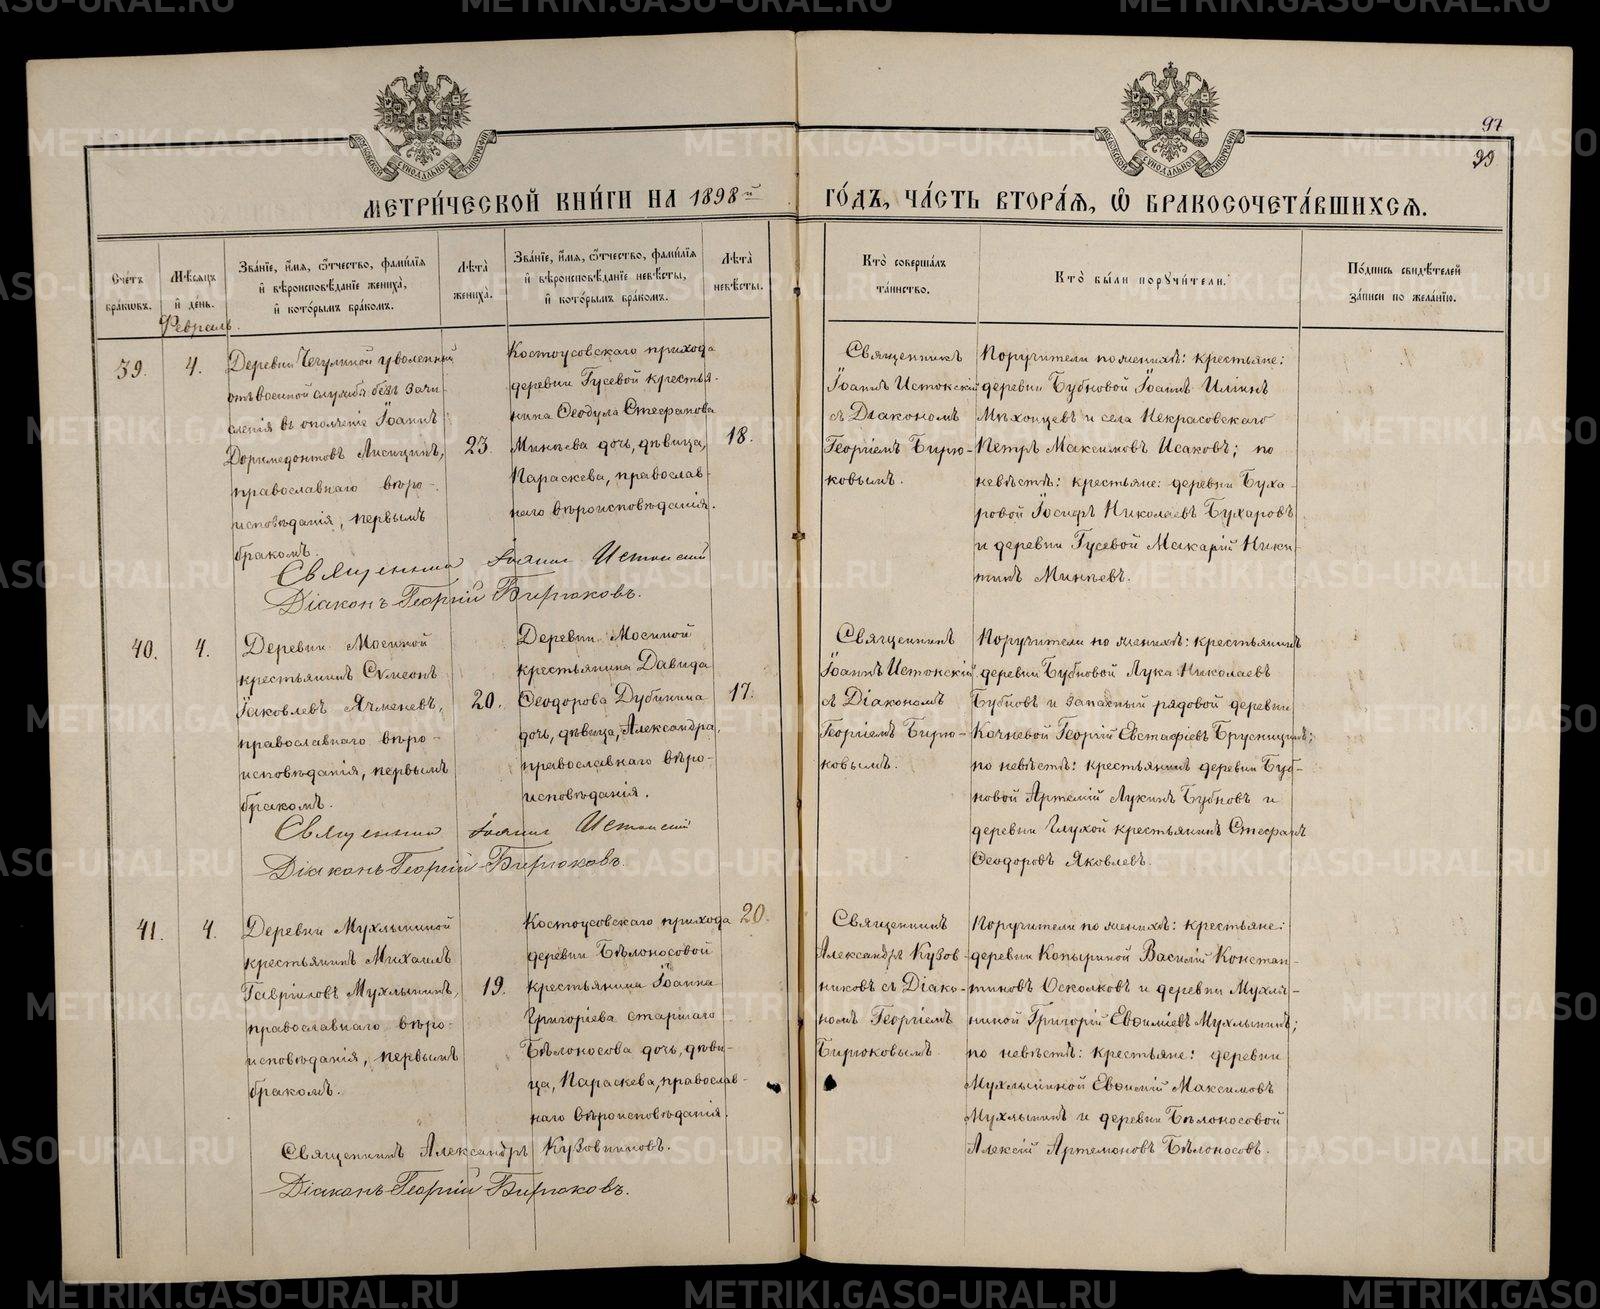 97
99
МЕТРИ́ЧЕСКОЙ КНИ́ГИ НА 1898й ГО́ДЪ, ЧА́СТЬ ВТОРА́Я, Ѽ БРАКОСОЧЕТА́ВШИХСЯ.
Сче́тъ бра́кѡвъ.
Мѣ́сяцъ и҆ де́нь.
Зва́нїе, и҆́мя, ѻ҆́тчество, фами́лїя и҆ вѣроисповѣ́данїе жениха̀, и҆ кото́рымъ бра́комъ.
Лѣ́та жениха̀.
Зва́нїе, и҆́мя, ѻ҆́тчество, фами́лїя и҆ вѣроисповѣ́данїе невѣ́сты, и҆ кото́рымъ бра́комъ.
Лѣ́та невѣ́сты.
Кто̀ соверша́лъ та́инство.
Кто̀ бы́ли порꙋчи́тели.
По́дпись свидѣ́телей за́писи по жела́нїю.
Февраль.
39.
4.
Деревни Чечулиной уволенный
отъ военной службы безъ зачи-
сленія въ ополченіе Іоаннъ
Доримедонтовъ Лисицинъ,
православнаго вѣро-
исповѣданія, первымъ
бракомъ.
23.
Костоусовскаго прихода
деревни Гусевой крестья-
нина Ѳеодула Стефанова
Минѣева дочь, дѣвица,
Параскева, православ-
наго вѣроисповѣданія.
18.
Священникъ
Іоаннъ Истокскій
съ Діакономъ
Георгіемъ Бирю-
ковымъ.
Поручители по женихѣ: крестьяне:
деревни Бубновой Іоаннъ Илiинъ
Мѣхонцевъ и села Некрасовскаго
Петръ Максимовъ Исаковъ; по
невѣстѣ: крестьяне: деревни Буха-
ровой Іосифъ Николаевъ Бухаровъ
и деревни Гусевой Макарій Ники-
тинъ Минѣевъ.
Священник Іоанн Истокский
Діаконъ Георгій Бирюковъ.
40.
4.
Деревни Мосиной
крестьянинъ Сѵмеонъ
Іаковлевъ Ячменевъ,
православнаго вѣро-
исповѣданія, первымъ
бракомъ.
20.
Деревни Мосиной
крестьянина Давида
Ѳеодорова Дубинина
дочь, дѣвица, Александра,
православнаго вѣро-
исповѣданія.
17.
Священникъ
Іоаннъ Истокскій
съ Діакономъ
Георгіемъ Бирю-
ковымъ.
Поручители по женихѣ: крестьянинъ
деревни Бубновой Лука Николаевъ
Бубновъ и запасный рядовой деревни
Кочневой Георгій Евстафіевъ Брусницынъ;
по невѣстѣ: крестьянинъ деревни Буб-
новой Артемій Лукинъ Бубновъ и
деревни Глухой крестьянинъ Стефанъ
Ѳеодоровъ Яковлевъ.
Священник Іоанн Истокский
Діаконъ Георгій Бирюковъ.
41.
4.
Деревни Мухлыниной
крестьянинъ Михаилъ
Гавріиловъ Мухлынинъ,
православнаго вѣро-
исповѣданія, первымъ
бракомъ.
19.
Костоусовскаго прихода
деревни Бѣлоносовой
крестьянина Іоанна
Григоріева старшаго
Бѣлоносова дочь, дѣви-
ца, Параскева, православ-
наго вѣроисповѣданія.
20.
Священникъ
Александръ Кузов-
никовъ съ Діако-
номъ Георгіемъ
Бирюковымъ.
Поручители по женихѣ: крестьяне:
деревни Копыриной Василій Констан-
тиновъ Осколковъ и деревни Мухлы-
ниной Григорій Евѳиміевъ Мухлынинъ;
по невѣстѣ: крестьяне: деревни
Мухлыниной Евѳимій Максимовъ
Мухлынинъ и деревни Бѣлоносовой
Алексій Артемоновъ Бѣлоносовъ.
Священникъ Александръ Кузовниковъ.
Діаконъ Георгій Бирюковъ.
METRIKI.GASO-URAL.RU